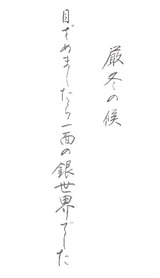 厳冬の候
目ざめましたら一面の銀世界でした